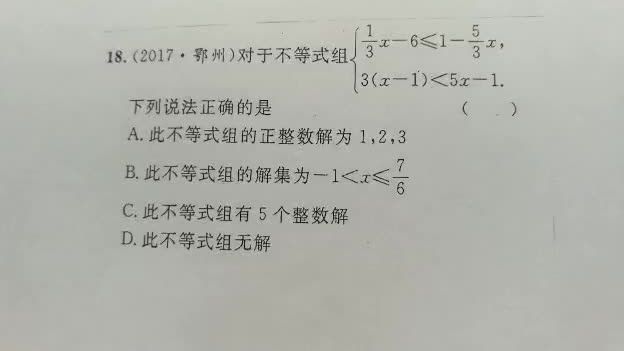 18.(2017·鄂州)对于不等式组{1/3x-6≤1-5/3x,
3(x-1)<5x-1.
下列说法正确的是 ( )
A.此不等式组的正整数解为1,2,3
B.此不等式组的解集为-1<x≤7/6
C.此不等式组有5个整数解
D.此不等式组无解